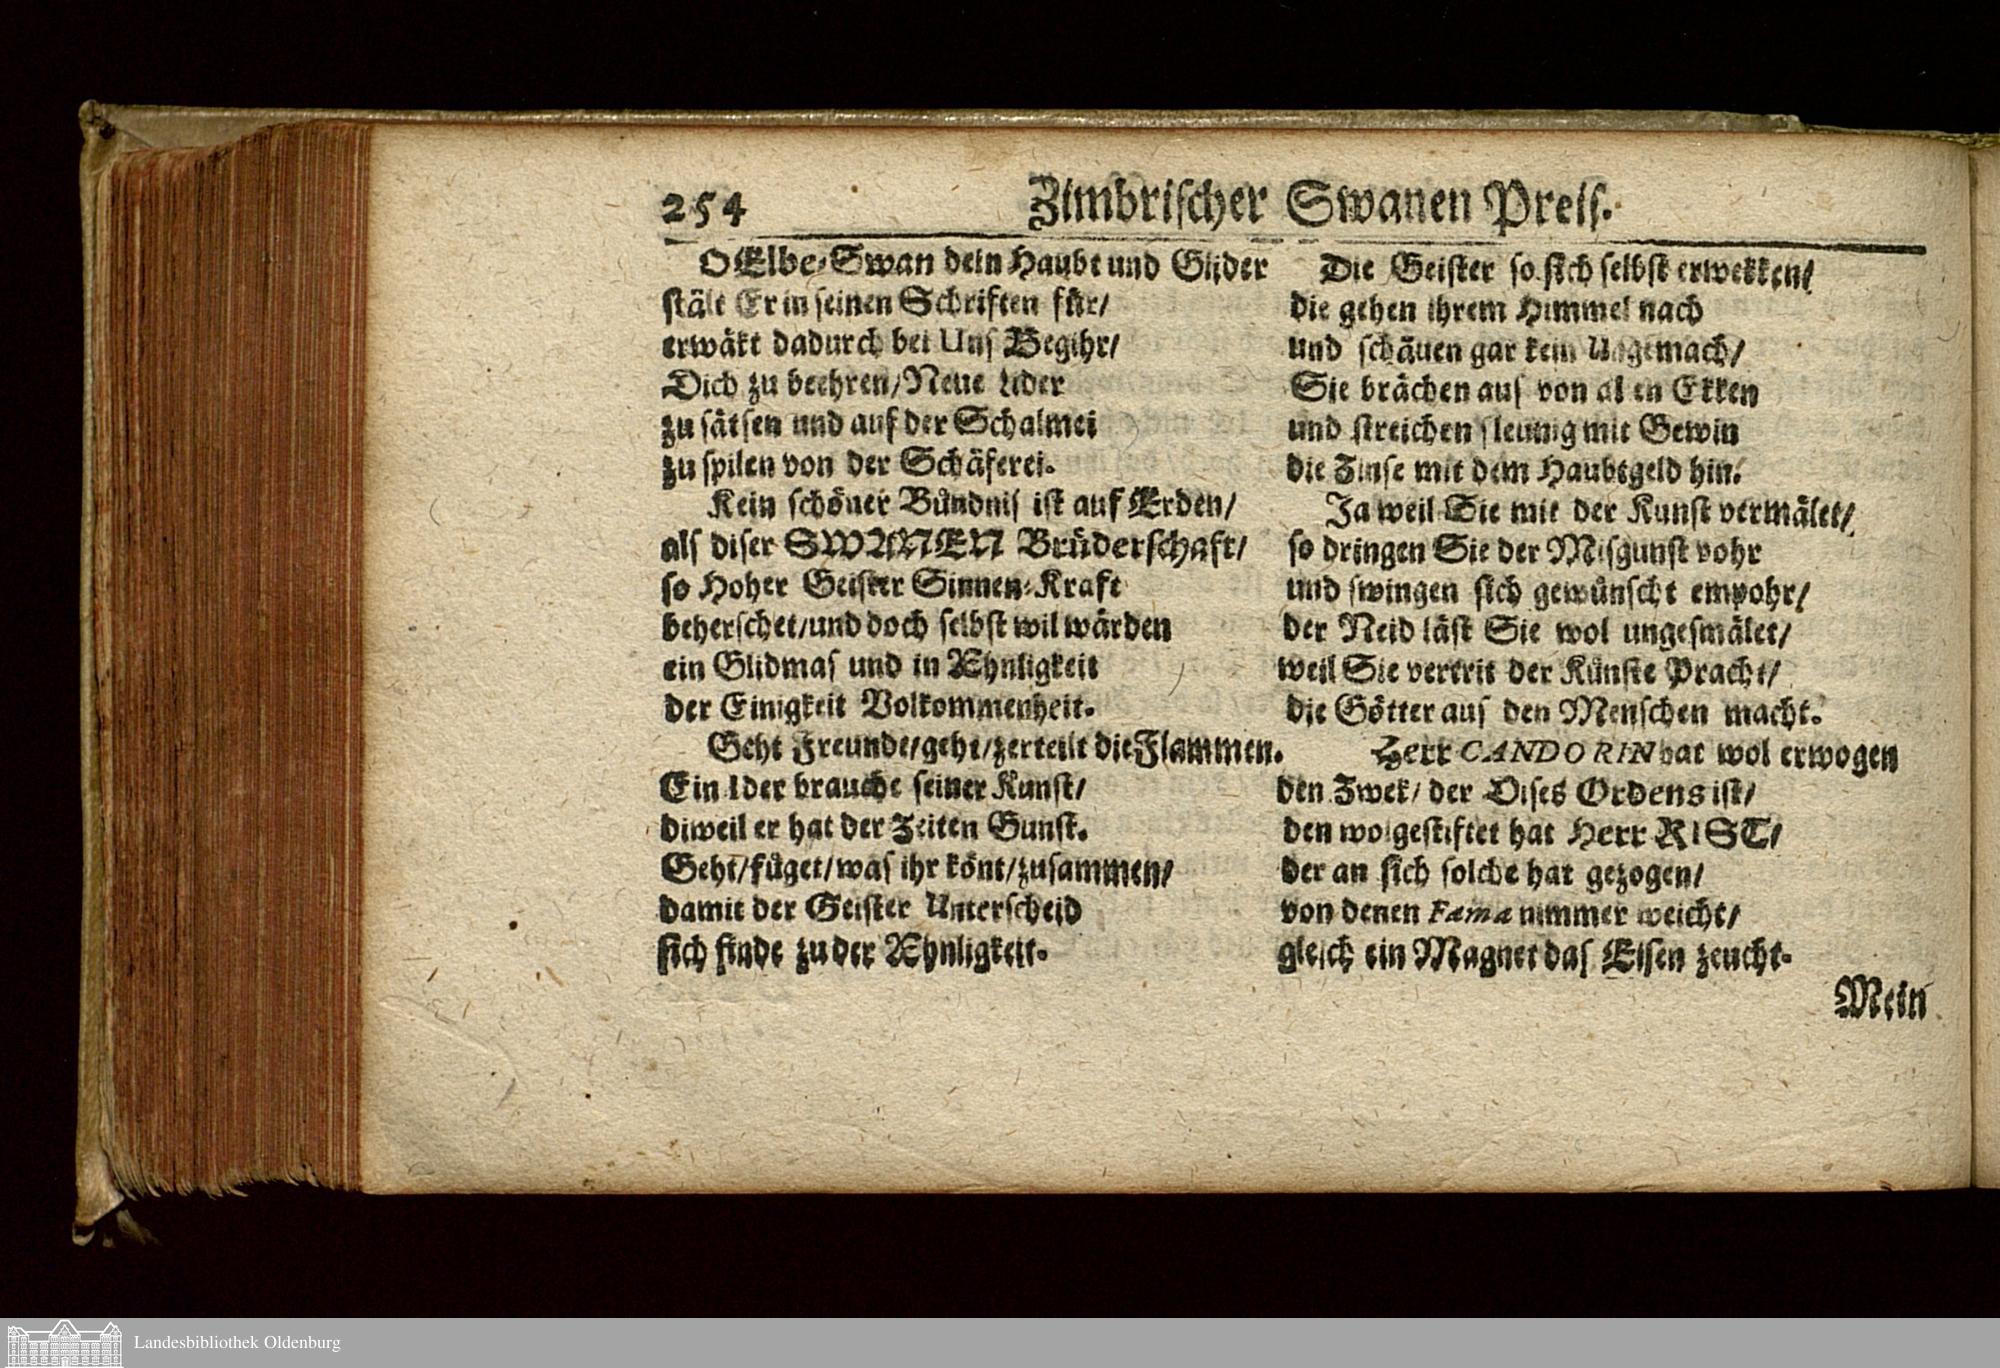 254
Zimbrischer Swanen Preis.
O Elbe-Swan dein Haubt und Glider
stält Er in seinen Schriften für/
erwäkt dadurch bei Uns Begihr/
Dich zu beehren/ Neue Lider
zu sätsen und auf der Schalmei
zu spilen von der Schäferei.
Kein schöner Bündnis ist auf Erden/
als diser SWANEN Brüderschaft/
so Hoher Geister Sinnen-Kraft
beherschet/ und doch selbst wil wärden
ein Glidmas und in Ahnligkeit
der Einigkeit Volkommenheit.
Geht Freunde/ geht/ zerteilt die Flammen.
Ein Ider brauche seiner Kunst/
diweil er hat der Zeiten Gunst.
Geht/ füget/ was ihr könt/ zusammen/
damit der Geister Unterscheid
sich finde zu der Ahnligkeit.
Die Geister so sich selbst erwekken/
die gehen ihrem Himmel nach
und schäuen gar kein Ungemach/
Sie brächen aus von allen Ekken
und streichen sleunig mit Gewin
die Zinse mit dem Haubtgeld hin.
Ja weil Sie mit der Kunst vermälet/
so dringen Sie der Misgunst vohr
und swingen sich gewünscht empohr/
der Neid läst Sie wol ungesmälet/
weil Sie vertrit der Künste Pracht/
die Götter aus den Menschen macht.
Herr CANDORIN hat wol erwogen
den Zwek/ der Dises Ordens ist/
den wolgestiftet hat Herr RIST/
der an sich solche hat gezogen/
von denen Fama nimmer weicht/
gleich ein Magnet das Eisen zeucht.
Mein
Landesbibliothek Oldenburg